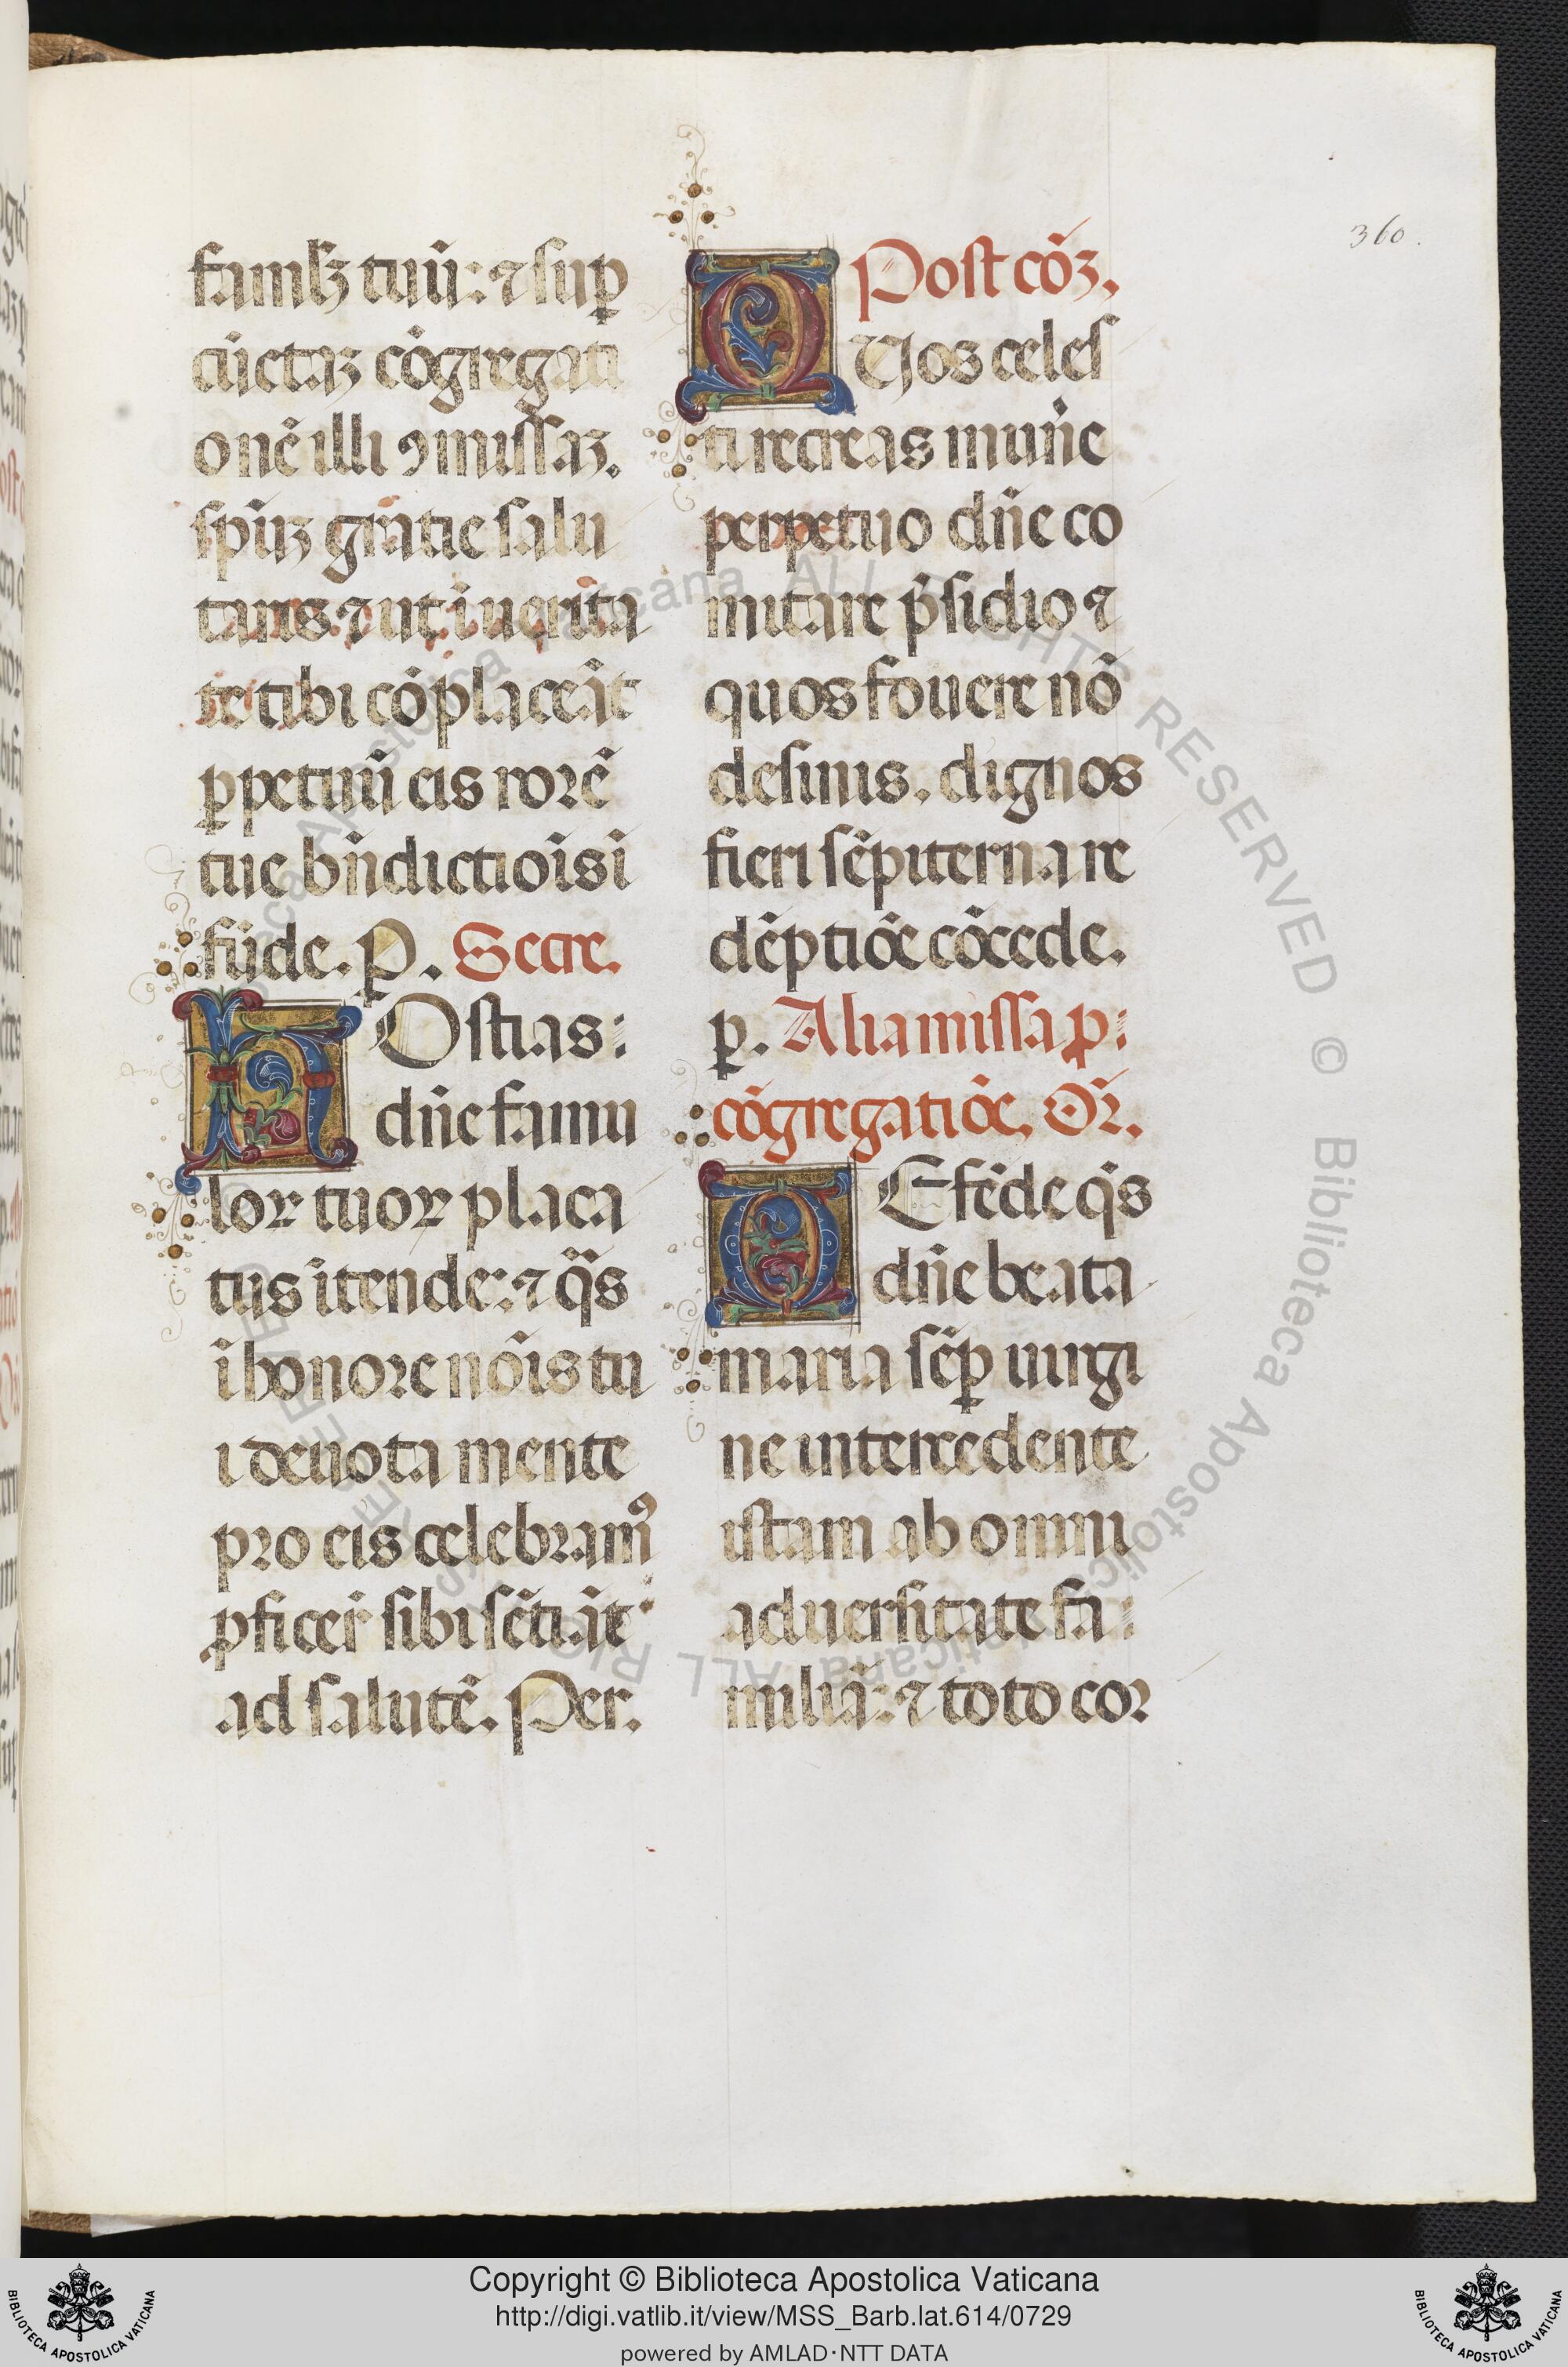 famłʒ tuũ: ⁊ suꝑ
cũctaʒ cõgregati
onẽ illi ꝯmissaʒ.
sp̃uʒ gratie salu
taris ⁊ ut ĩ uerita
te tibi cõplaceãt
ꝑpetuũ eis rorẽ
tue bñdictiõis ĩ
fũde. P. Secre.
HOstias:
dñe famu
loꝝ tuoꝝ placa
tus ĩtende: ⁊ q̃s
ĩ honore nõis tu
i deuota mente
pro eis celebramꝰ
ꝓficer̃ sibi sẽtiãt
ad salutẽ. Per.
Post cõʒ.
QUos celes
ti recreas muñe
perpetuo dñe co
mitare p̃sidio ⁊
quos fouere nõ
desinis. dignos
fieri sẽpiterna re
dẽptiõe cõcede.
ꝑ. Alia missa ꝓ:
cõgregatiõe. Or̃.
DEfẽde q̃s
dñe beata
maria sẽꝑ uirgi
ne intercedente
istam ab omni
aduersitate fa:
miliã: ⁊ toto cor
360.
Biblioteca Apostolica Vaticana ALL RIGHTS RESERVED ©
Copyright © Biblioteca Apostolica Vaticana
http://digi.vatlib.it/view/MSS_Barb.lat.614/0729
powered by AMLAD·NTT DATA
BIBLIOTECA APOSTOLICA VATICANA
BIBLIOTECA APOSTOLICA VATICANA